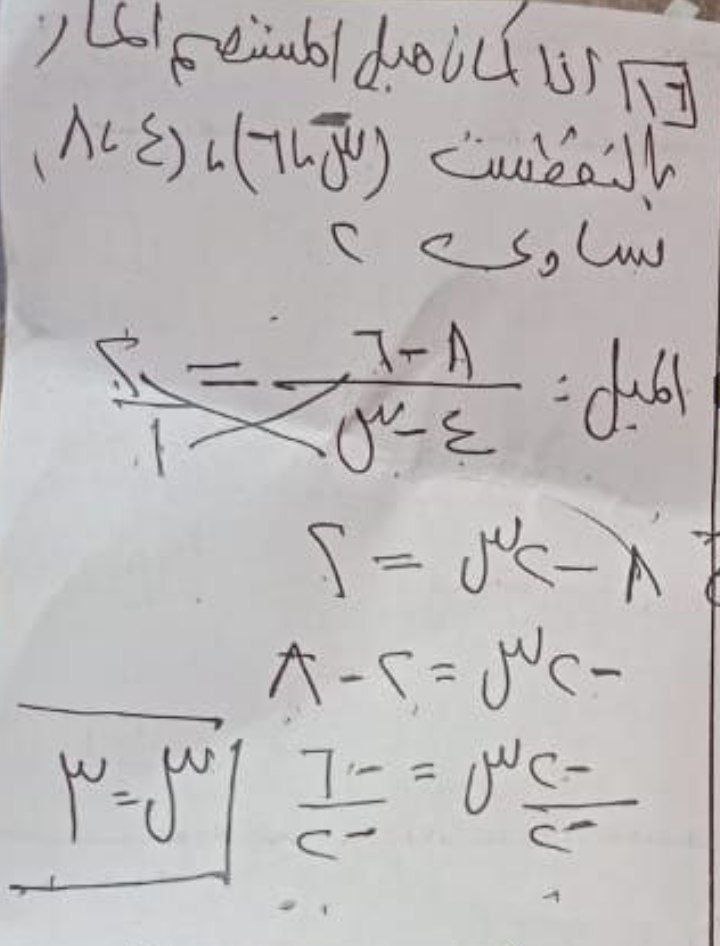 ١٦ اذا كان ميل المستقيم المار
بالنقطتين (س، ٦)، (٤، ٨)
تساوى ٢
الميل = ٨ - ٦ / ٤ - س = ٢ / ١
٨ - ٢س = ٢
-٢س = ٢ - ٨
-٢س / -٢ = -٦ / -٢
س = ٣